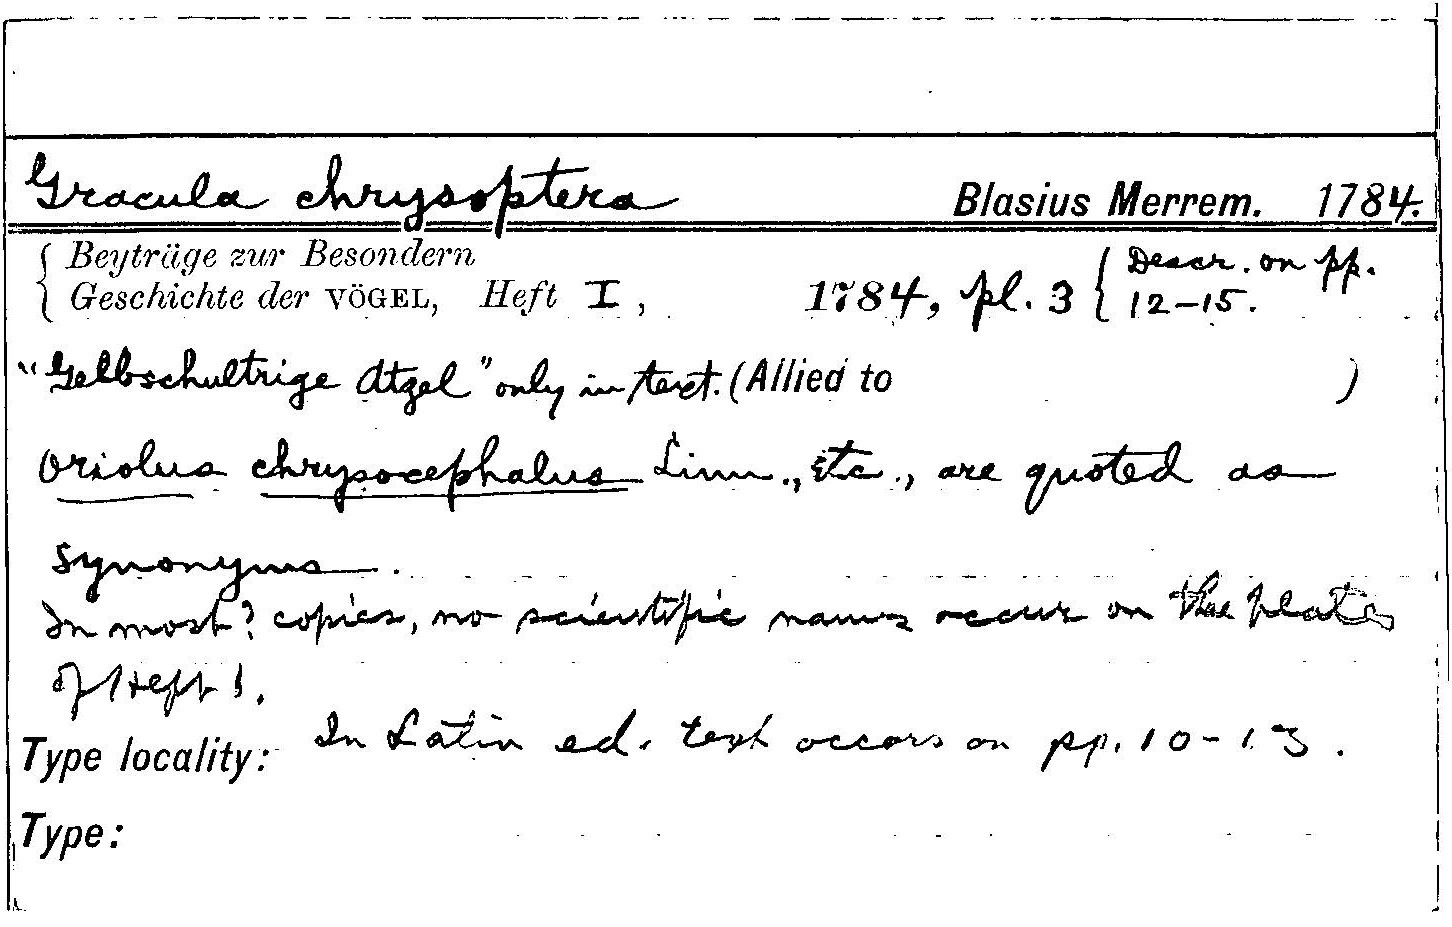 Gracula chrysoptera Blasius Merrem. 1784.
Beyträge zur Besondern
Geschichte der VÖGEL, Heft I, 1784, pl. 3 { Descr. on pp.
12-15.
"Gelbschultrige Atzel" only in text. (Allied to )
Oriolus chrysocephalus Linn., etc., are quoted as
synonyms.
In most? copies, no scientific names occur on the plates
of Heft I.
In Latin ed. text occors on pp. 10-13.
Type locality:
Type: